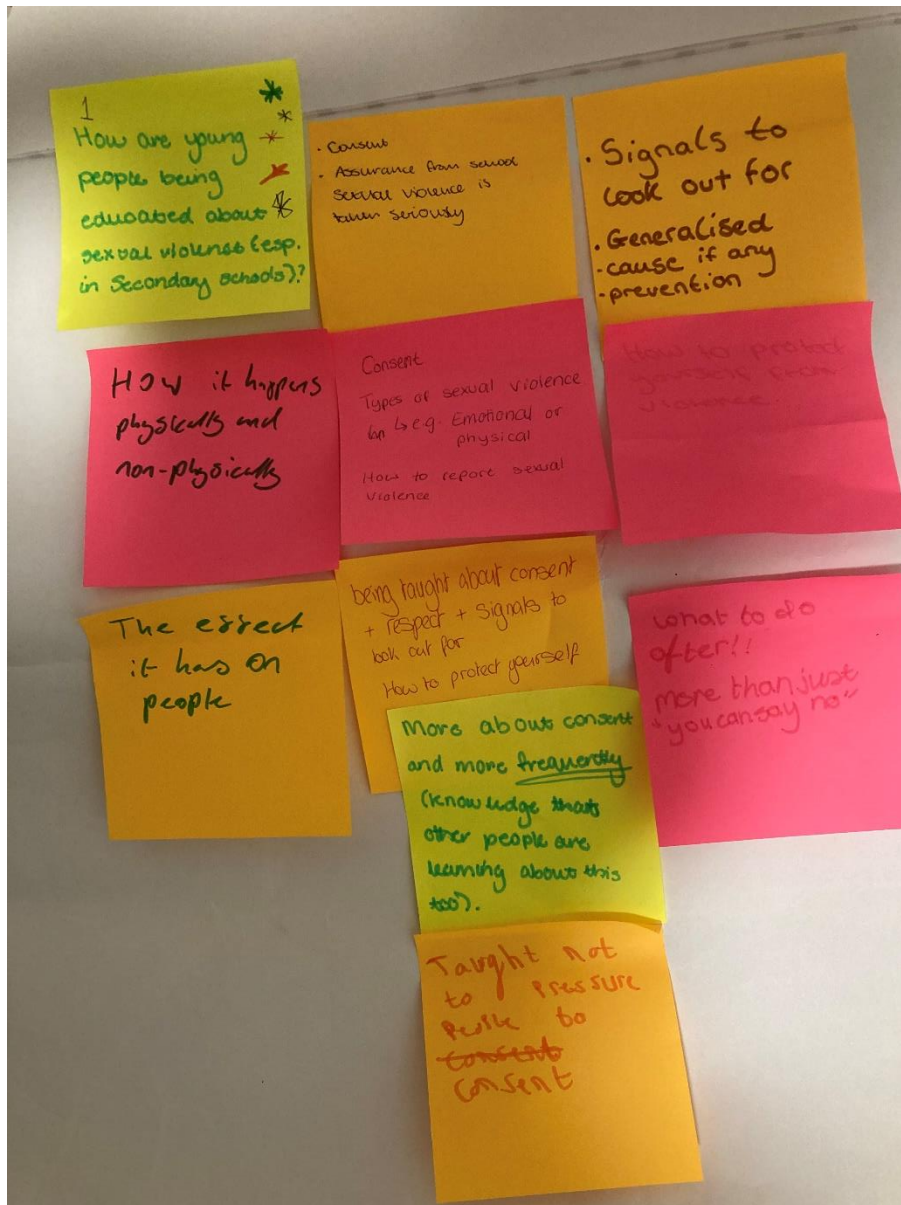 1
How are young
people being
educated about
sexual violence (esp.
in Secondary schools)?
· Consent
· Assurance from school
Sexual violence is
taken seriously
· Signals to
look out for
· Generalised
· cause if any
· prevention
How it happens
physically and
non-physically
Consent
Types of sexual violence
↳ e.g. Emotional or
physical
How to report sexual
violence
How to protect
yourself from
violence.
The effect
it has on
people
being taught about consent
+ respect + signals to
look out for
How to protect yourself
what to do
after!!
more than just
"you can say no"
More about consent
and more frequently
(knowledge thats
other people are
learning about this
too).
Taught not
to pressure
people to
consent
consent